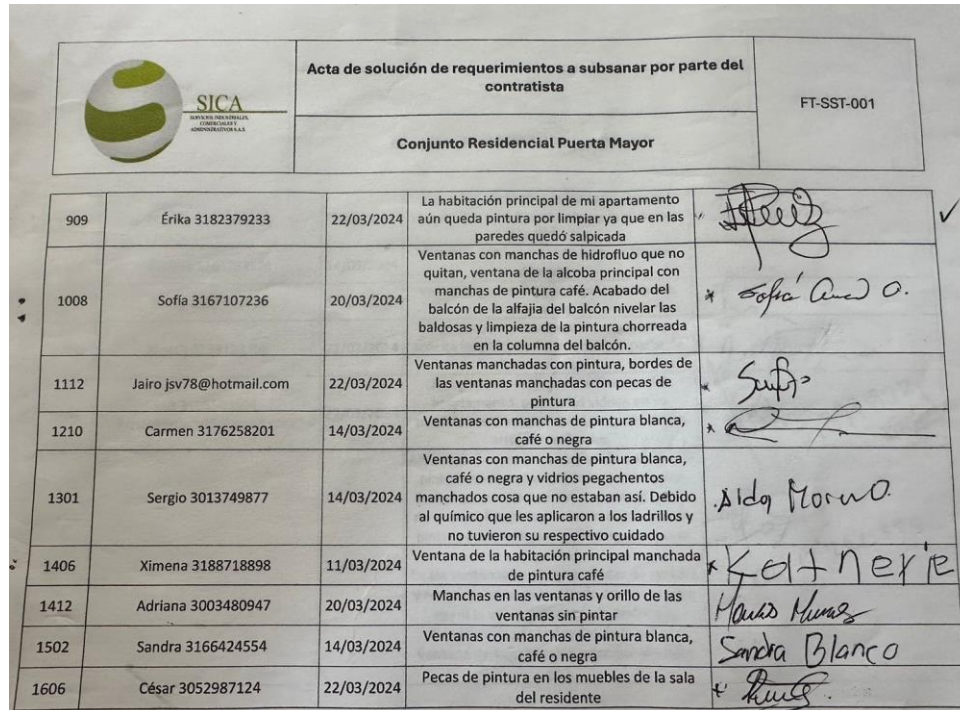 SICA
SERVICIOS INDUSTRIALES,
COMERCIALES Y
ADMINISTRATIVOS S.A.S.
Acta de solución de requerimientos a subsanar por parte del
contratista
Conjunto Residencial Puerta Mayor
FT-SST-001
909 Érika 3182379233 22/03/2024
La habitación principal de mi apartamento
aún queda pintura por limpiar ya que en las
paredes quedó salpicada
1008 Sofía 3167107236 20/03/2024
Ventanas con manchas de hidrofluo que no
quitan, ventana de la alcoba principal con
manchas de pintura café. Acabado del
balcón de la alfajia del balcón nivelar las
baldosas y limpieza de la pintura chorreada
en la columna del balcón.
Sofía O.
1112 Jairo jsv78@hotmail.com 22/03/2024
Ventanas manchadas con pintura, bordes de
las ventanas manchadas con pecas de
pintura
1210 Carmen 3176258201 14/03/2024
Ventanas con manchas de pintura blanca,
café o negra
1301 Sergio 3013749877 14/03/2024
Ventanas con manchas de pintura blanca,
café o negra y vidrios pegachentos
manchados cosa que no estaban así. Debido
al químico que les aplicaron a los ladrillos y
no tuvieron su respectivo cuidado
Aldo Moreno.
1406 Ximena 3188718898 11/03/2024
Ventana de la habitación principal manchada
de pintura café
1412 Adriana 3003480947 20/03/2024
Manchas en las ventanas y orillo de las
ventanas sin pintar
1502 Sandra 3166424554 14/03/2024
Ventanas con manchas de pintura blanca,
café o negra
Sandra Blanco
1606 César 3052987124 22/03/2024
Pecas de pintura en los muebles de la sala
del residente